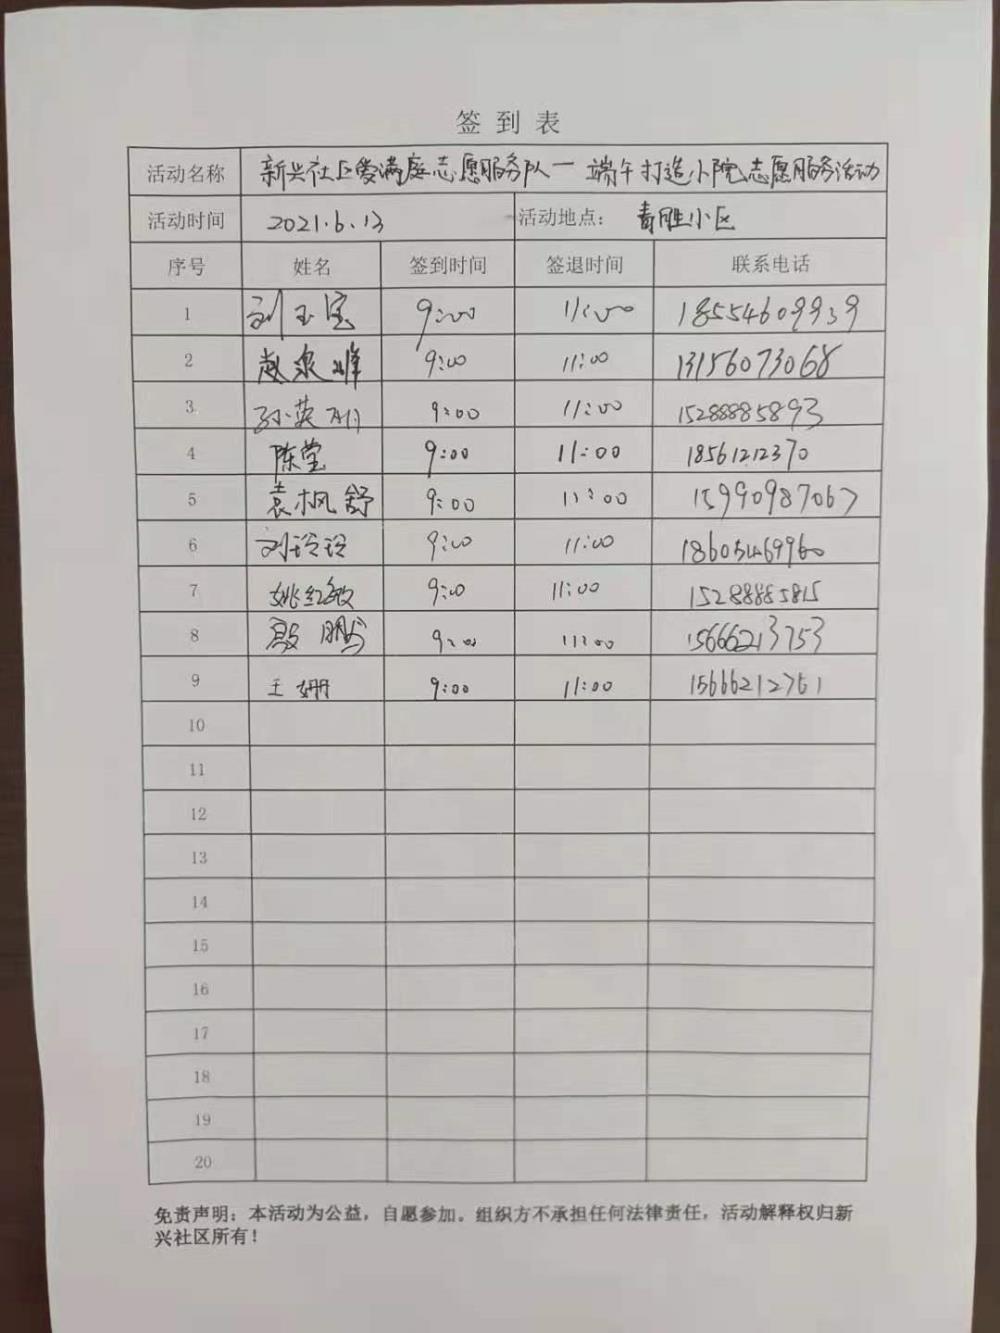 签到表
活动名称 新兴社区爱满庭志愿服务队一端午打造小院志愿服务活动
活动时间 2021.6.13 活动地点： 青胜小区
序号 姓名 签到时间 签退时间 联系电话
1 刘玉宝 9:00 11:00 18554609939
2 赵泉峰 9:00 11:00 13156073068
3 孙英 9:00 11:00 15288885893
4 陈莹 9:00 11:00 18561212370
5 袁枫舒 9:00 11:00 15990987067
6 刘玲玲 9:00 11:00 18605469960
7 姚红敏 9:00 11:00 15288885815
8 殷鹏 9:00 11:00 15666213753
9 王姗 9:00 11:00 15666212761
10
11
12
13
14
15
16
17
18
19
20
免责声明：本活动为公益，自愿参加。组织方不承担任何法律责任，活动解释权归新
兴社区所有！